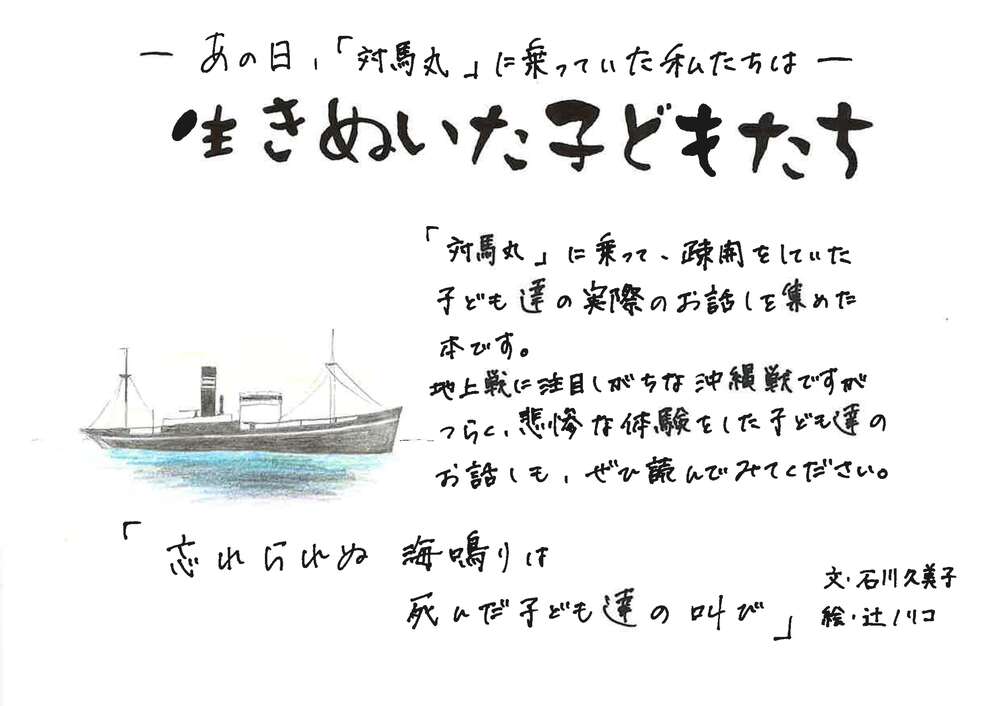 ― あの日、「対馬丸」に乗っていた私たちは ―
生きぬいた子どもたち
「対馬丸」に乗って、疎開をしていた
子ども達の実際のお話しを集めた
本です。
地上戦に注目しがちな沖縄戦ですが
つらく、悲惨な体験をした子ども達の
お話しも、ぜひ読んでみてください。
「忘れられぬ 海鳴りは
死んだ子ども達の叫び」
文・石川久美子
絵・辻ノリコ